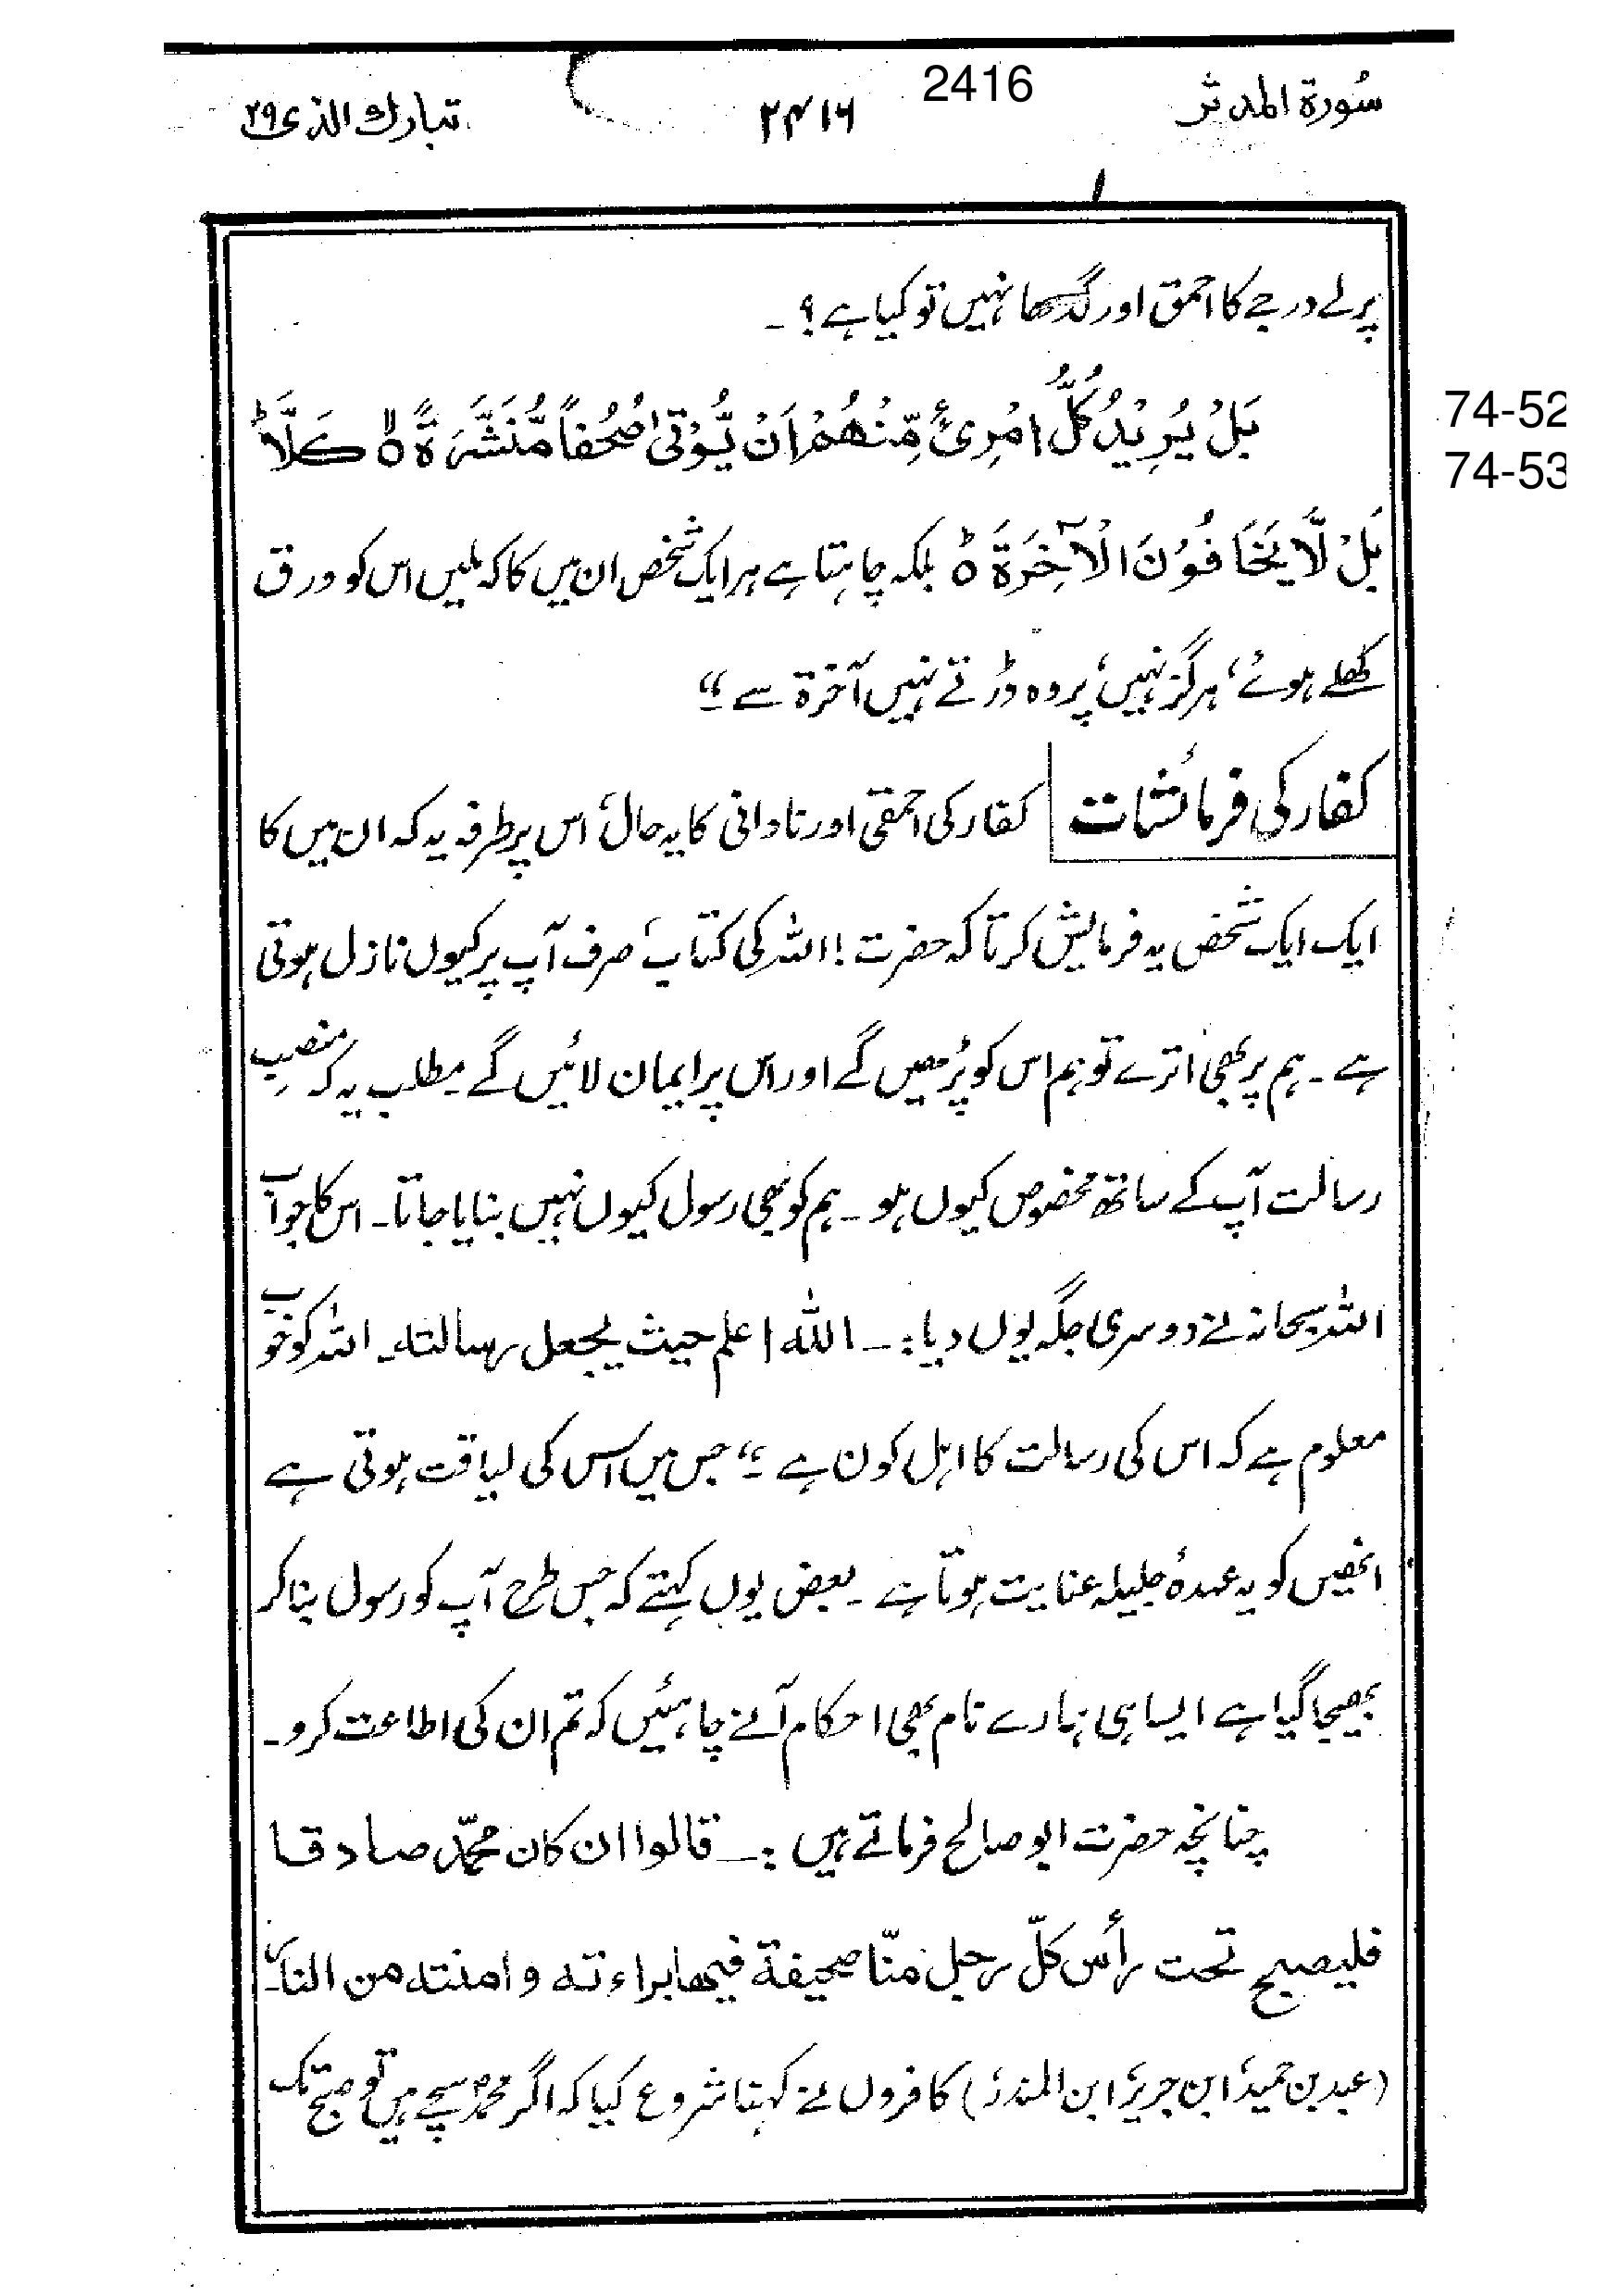 سُورة المدثر 2416 ۲۴۱۶ تبارك الذی ۲۹
پرلے درجے کا احمق اور گدھا نہیں تو کیا ہے؟۔
بَلْ يُرِيْدُ كُلُّ امْرِئٍ مِّنْهُمْ اَنْ يُّؤْتٰى صُحُفاً مُّنَشَّرَةً ۙ كَلَّا ؕ
74-52
74-53
بَلْ لَّا يَخَافُوْنَ الْاٰخِرَةَ ؕ بلکہ چاہتا ہے ہر ایک شخص ان میں کا کہ ملیں اس کو ورق
کھلے ہوئے، ہرگز نہیں، پر وہ ڈرتے نہیں آخرۃ سے۔“
کفار کی فرمائشات کفار کی احمقی اور نادانی کا یہ حال، اس پر طرفہ یہ کہ ان میں کا
ایک ایک شخص یہ فرمایش کرتا کہ حضرت! اللہ کی کتاب، صرف آپ پر کیوں نازل ہوتی
ہے۔ ہم پر بھی اترے تو ہم اس کو پڑھیں گے اور اس پر ایمان لائیں گے۔ مطلب یہ کہ منصبِ
رسالت آپ کے ساتھ مخصوص کیوں ہو۔ ہم کو بھی رسول کیوں نہیں بنایا جاتا۔ اس کا جواب
اللہ سبحانہ نے دوسری جگہ یوں دیا:۔ الله اعلم حيث يجعل رسالته۔ اللہ کو خوب
معلوم ہے کہ اس کی رسالت کا اہل کون ہے۔“ جس میں اس کی لیاقت ہوتی ہے
انھیں کو یہ عہدۂ جلیلہ عنایت ہوتا ہے۔ بعض یوں کہتے کہ جس طرح آپ کو رسول بنا کر
بھیجا گیا ہے ایسا ہی ہمارے نام بھی احکام آنے چاہئیں کہ تم ان کی اطاعت کرو۔
چنانچہ حضرت ابو صالح فرماتے ہیں:۔ قالوا ان كان محمّد صادقا
فليصبح تحت رأس كلّ رجل منّا صحيفة فيها براءته وامنته من النار۔
(عبد بن حمید، ابن جریر، ابن المنذر) کافروں نے کہنا شروع کیا کہ اگر محمدؐ سچے ہیں تو صبح تک